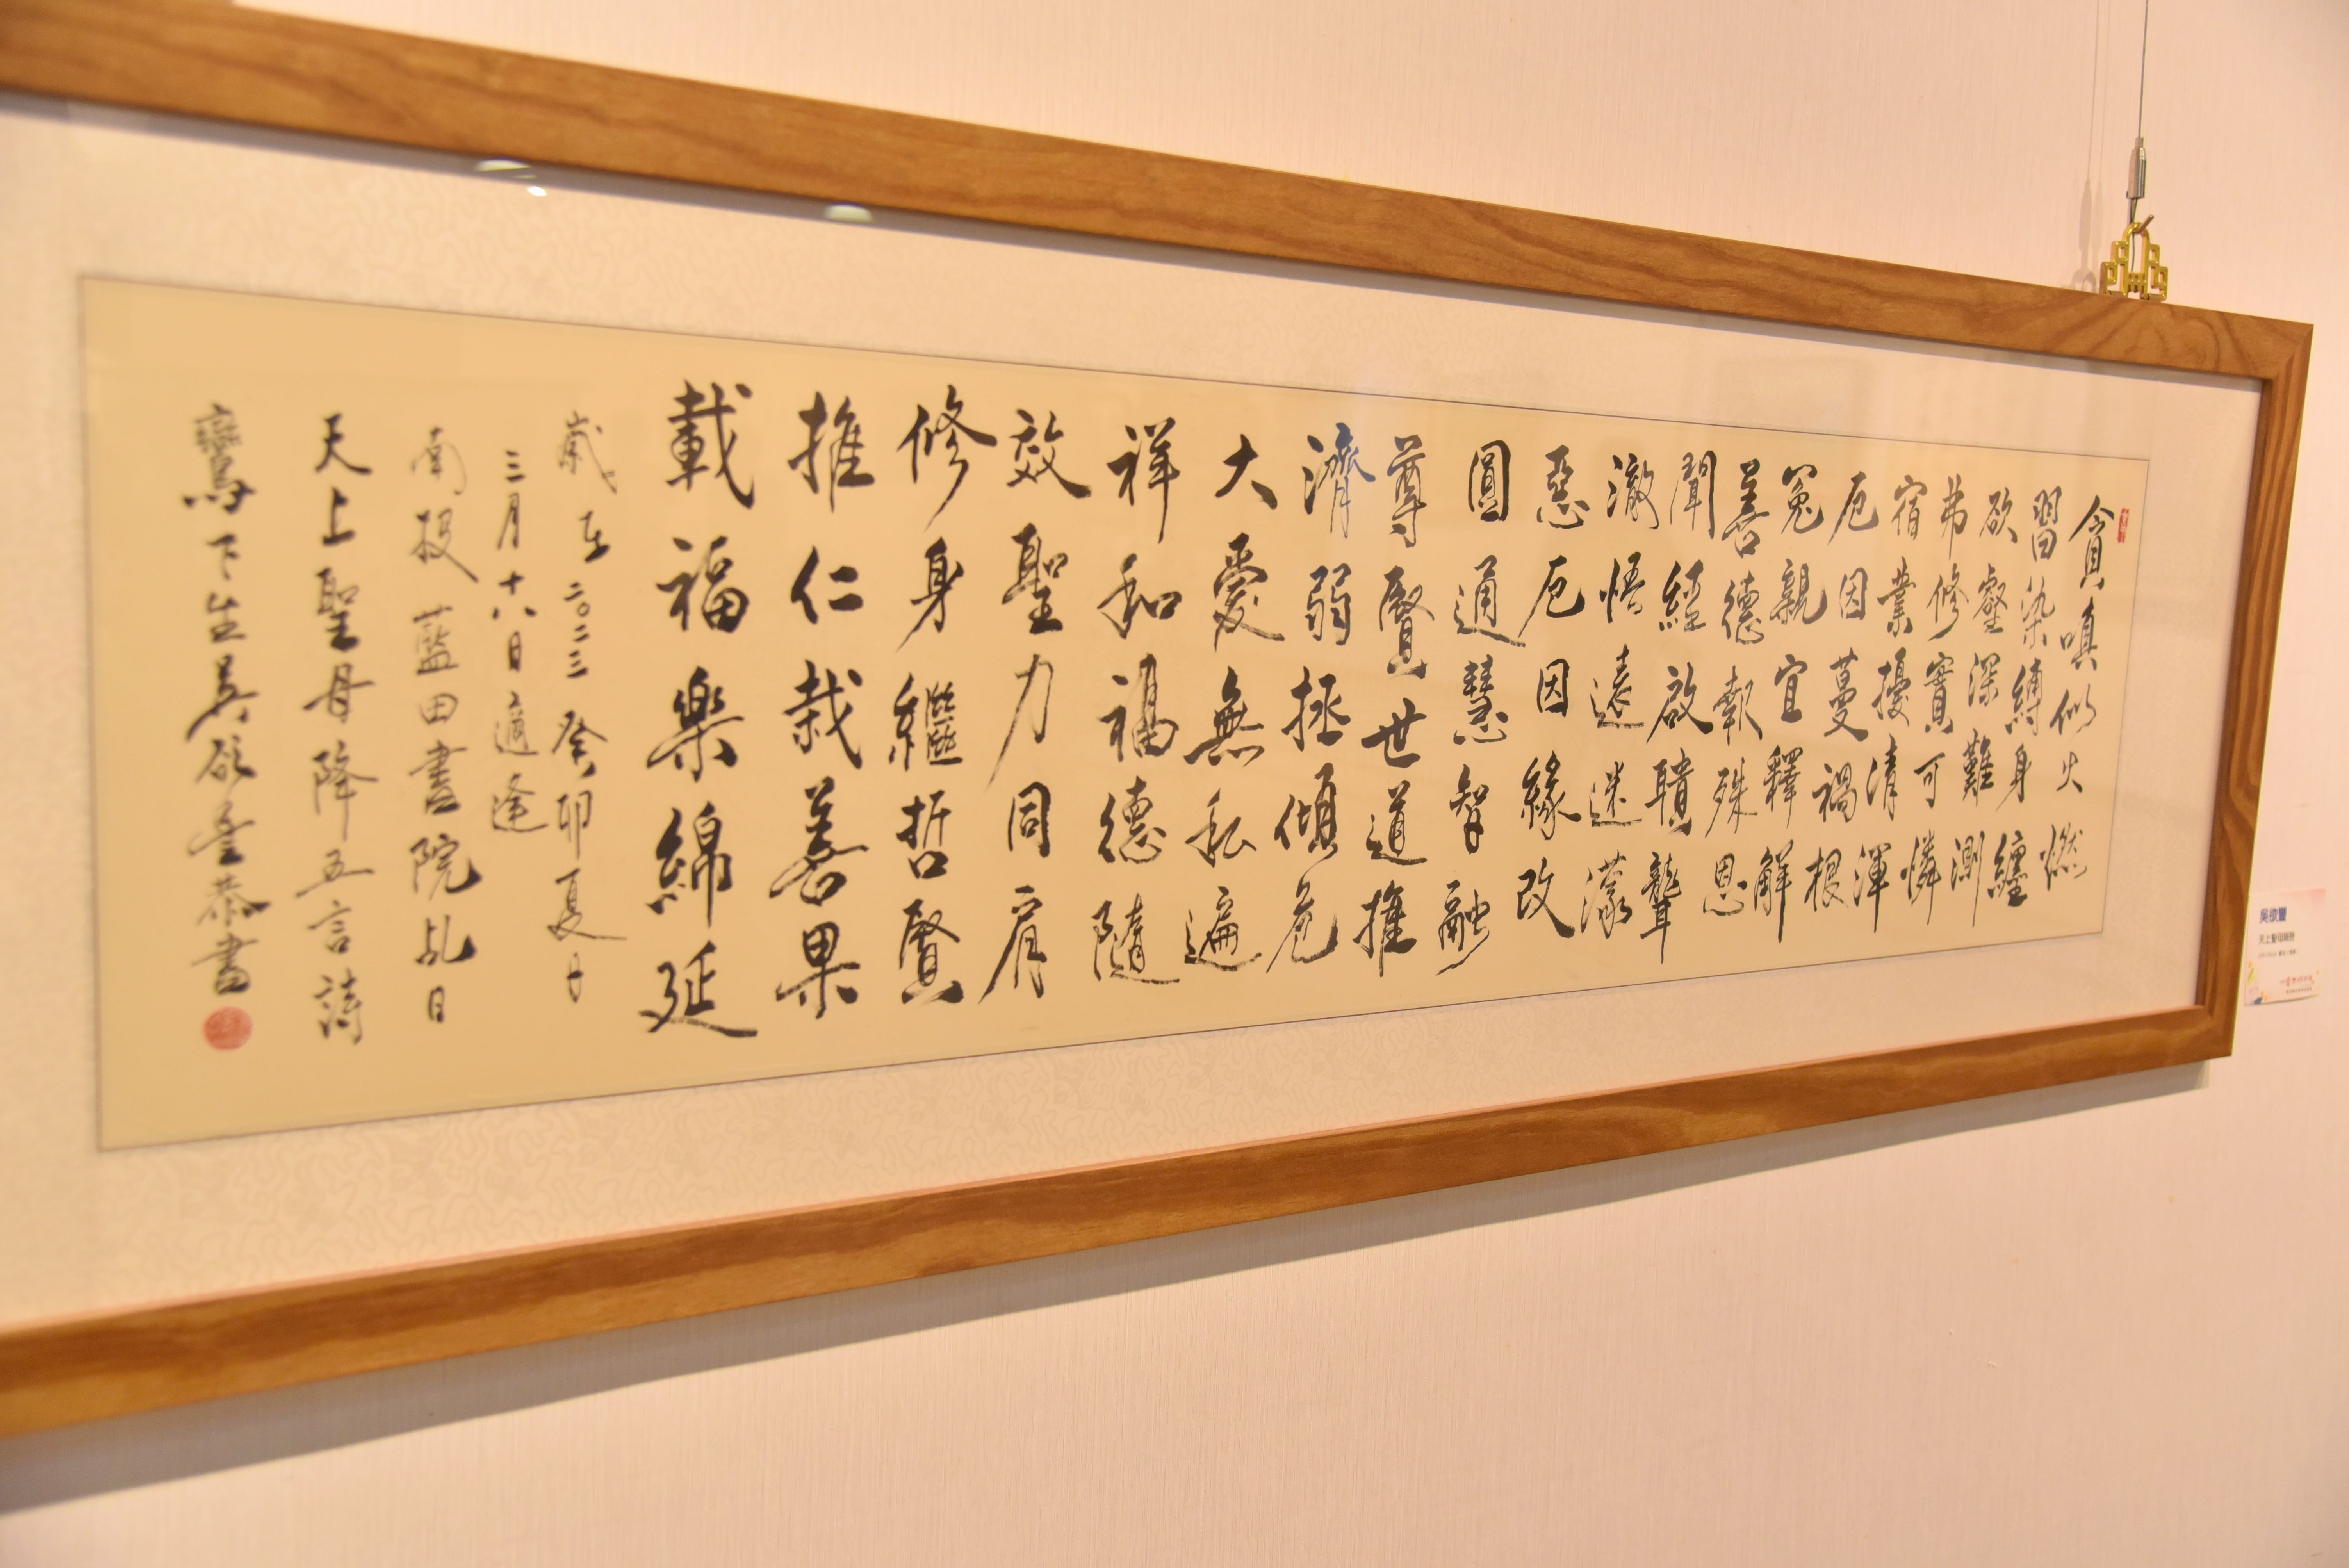 貪嗔似火燃
習染縛身纏
欲壑深難測
弟修實可憐
宿業擾清渾
厄因蔓禍根
冤親宜釋解
善德報殊恩
聞經啟聵聾
澈悟遠迷濛
惡厄因緣改
圓通慧智融
尊賢世道推
濟弱拯傾危
大愛無私遍
祥和福德隨
效聖力同肩
修身繼哲賢
推仁栽善果
載福樂綿延
歲在二〇二三癸卯夏月
三月十八日適逢
南投藍田書院乩日
天上聖母降五言詩
鸞下生吳欲豐恭書
吳欲豐
天上聖母降詩